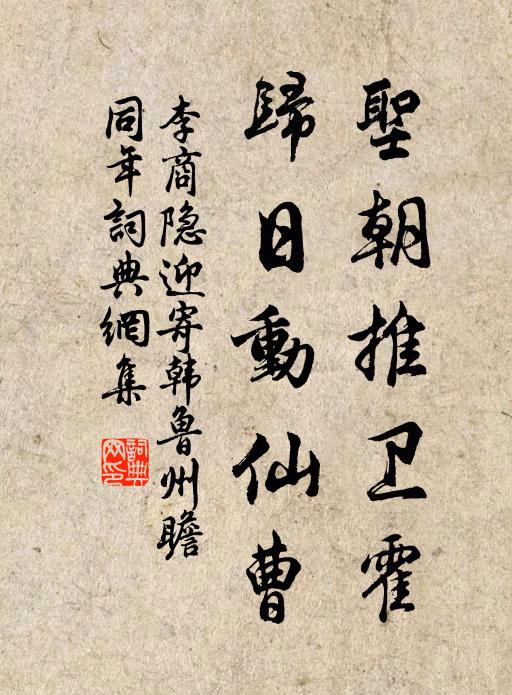 聖朝推卫霍
歸日動仙曹
李商隐迎寄韩魯州瞻
同年詞典網集
詞典网印